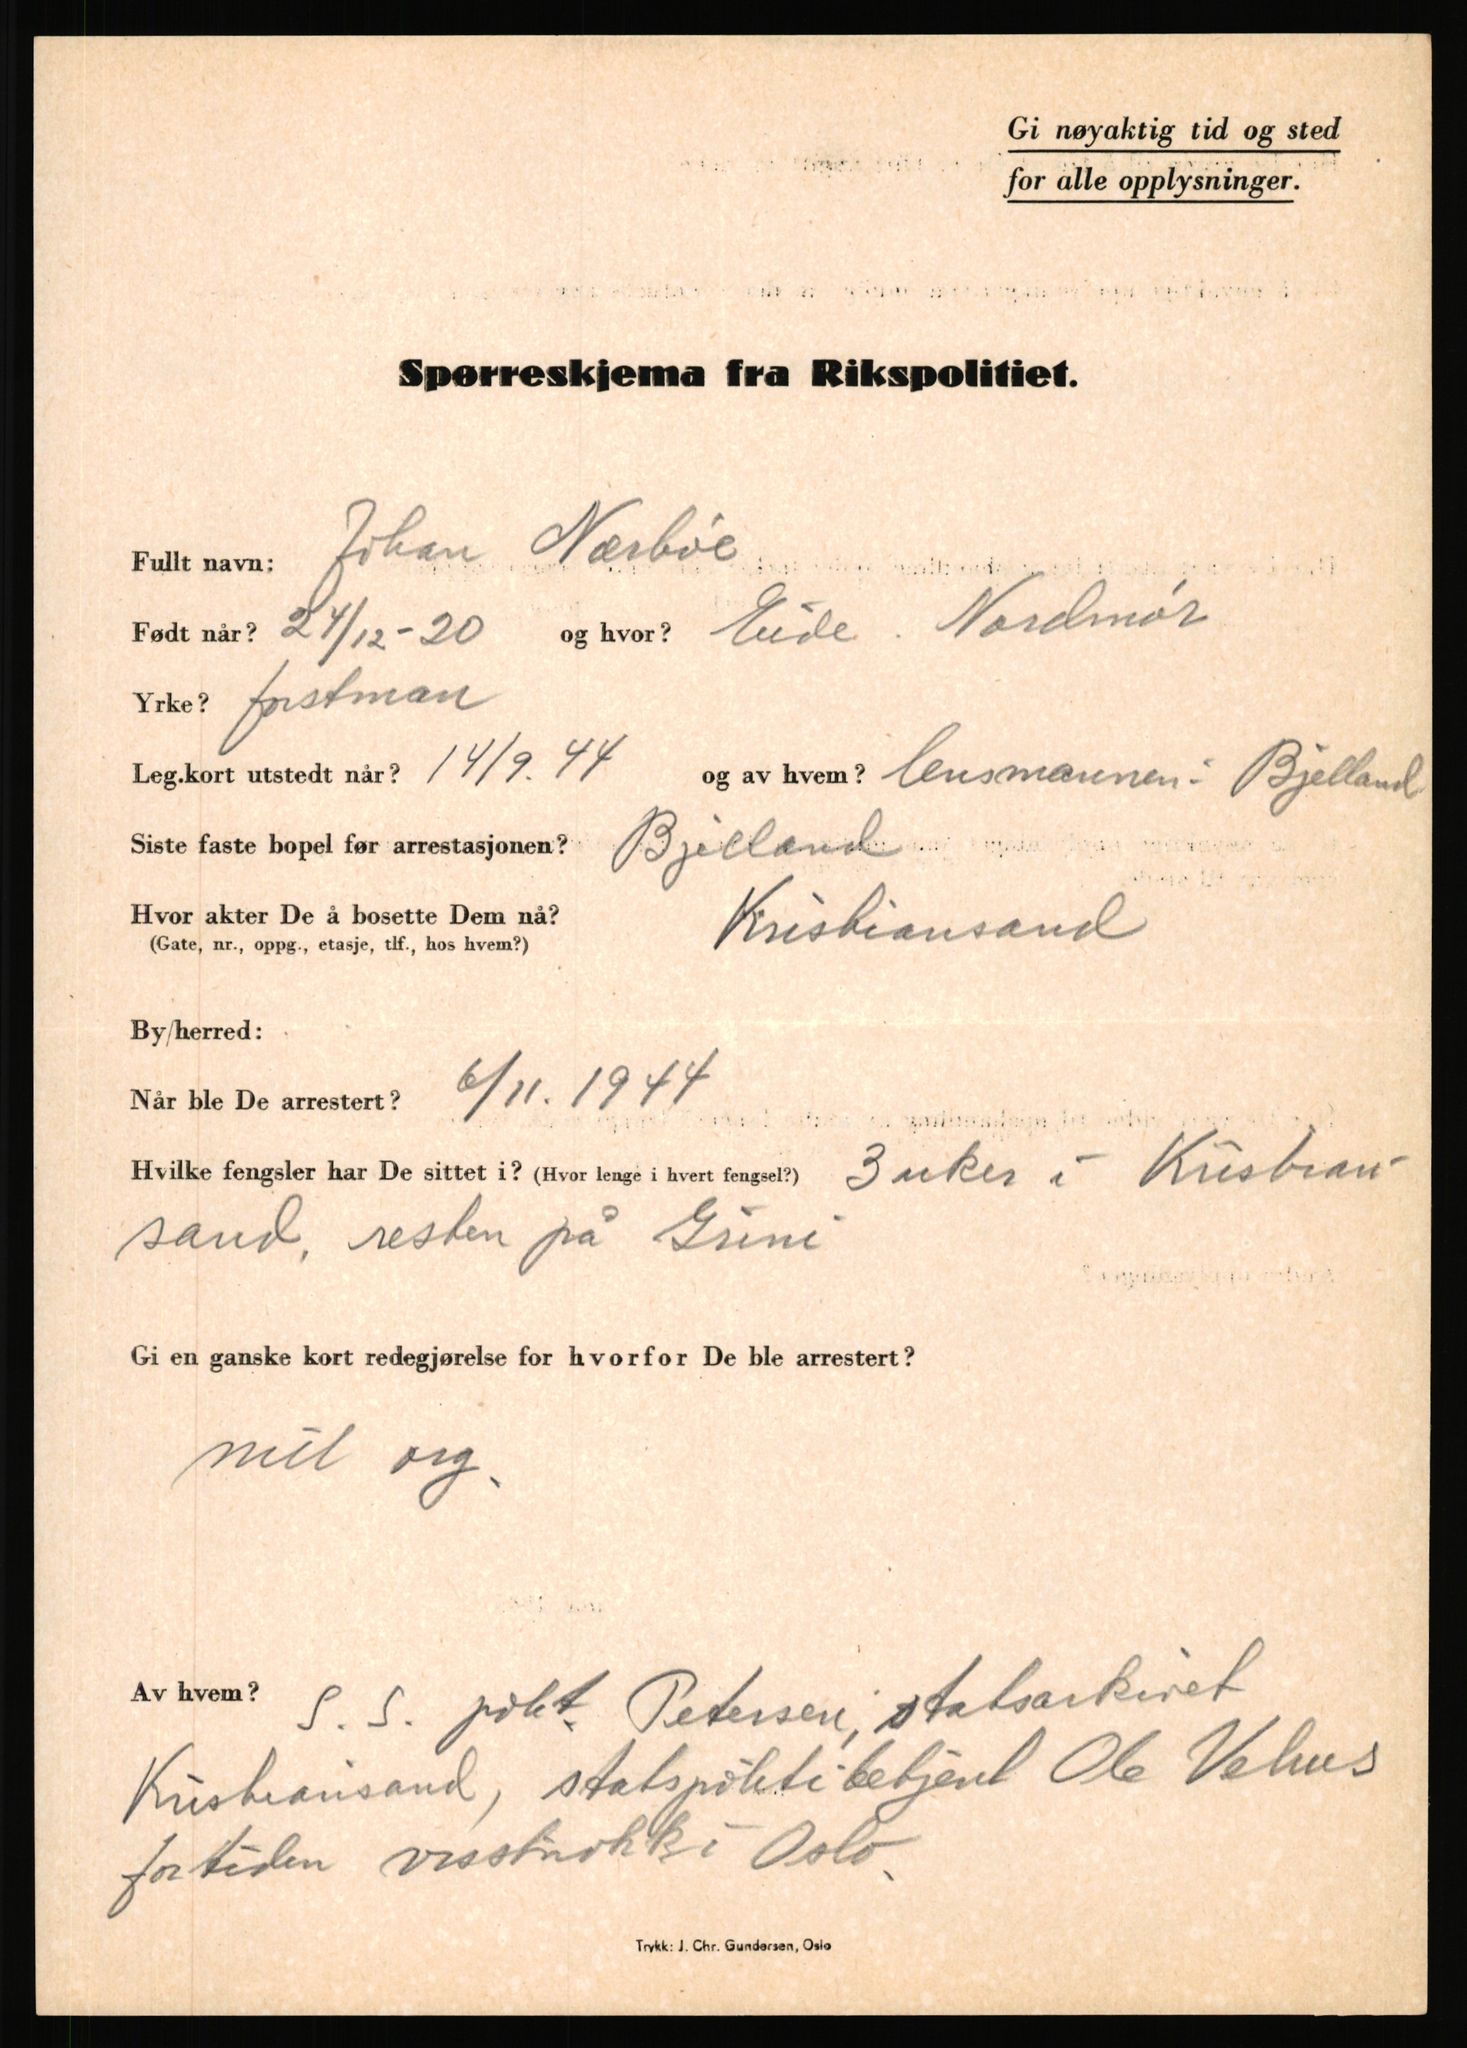 Gi nøyaktig tid og sted
for alle opplysninger.
Spørreskjema fra Rikspolitiet.
Fullt navn: Johan Nærbøe
Født når? 24/12-20 og hvor? Eide. Nordmør
Yrke? forstman
Leg.kort utstedt når? 14/9.44 og av hvem? lensmannen i Bjelland
Siste faste bopel før arrestasjonen? Bjelland
Hvor akter De å bosette Dem nå? Kristiansand
(Gate, nr., oppg., etasje, tlf., hos hvem?)
By/herred:
Når ble De arrestert? 6/11.1944
Hvilke fengsler har De sittet i? (Hvor lenge i hvert fengsel?) 3 uker i Kristian-
sand, resten på Grini
Gi en ganske kort redegjørelse for hvorfor De ble arrestert?
mil org.
Av hvem? S.S. polit. Petersen, statsarkivet
Kristiansand, statspolitibetjent Ole Vehus
for tiden visstnokk i Oslo.
Trykk: J. Chr. Gundersen, Oslo